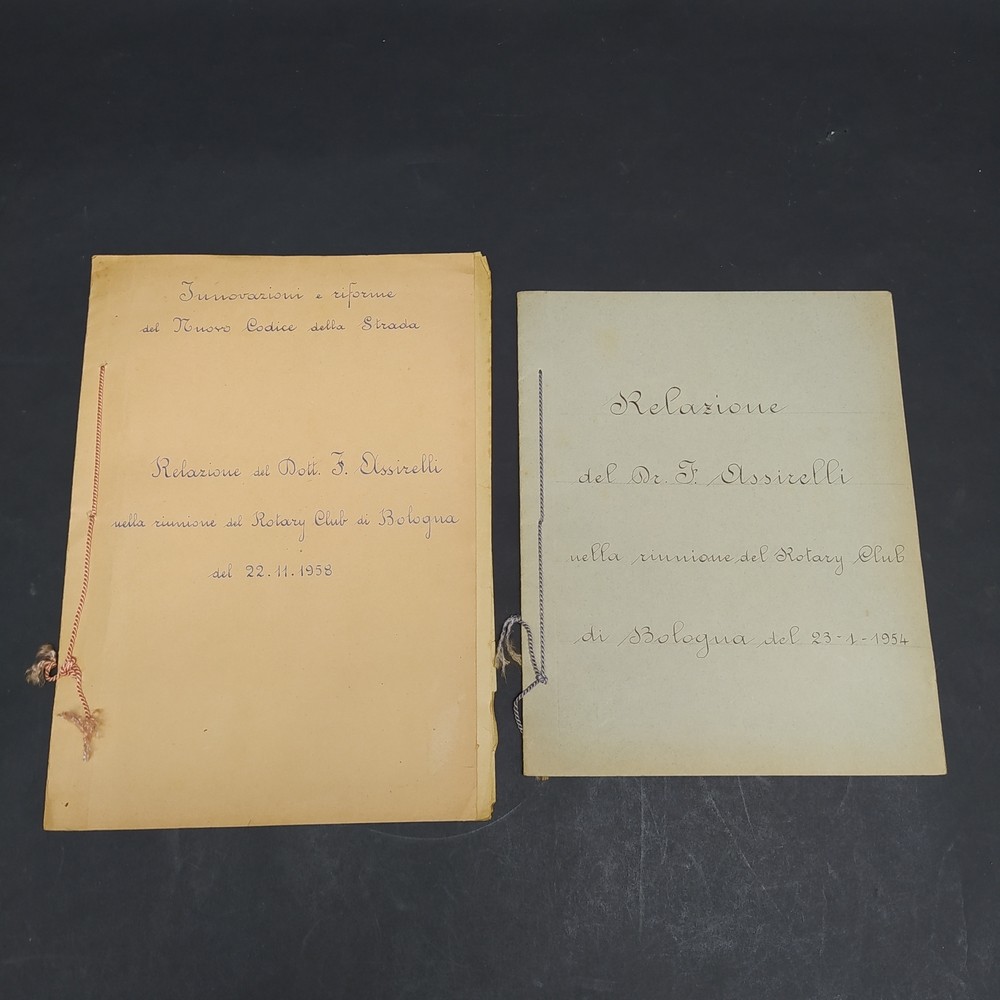 Innovazioni e riforme
del Nuovo Codice della Strada
Relazione del Dott. F. Assirelli
nella riunione del Rotary Club di Bologna
del 22.11.1958
Relazione
del Dr. F. Assirelli
nella riunione del Rotary Club
di Bologna del 23-1-1954